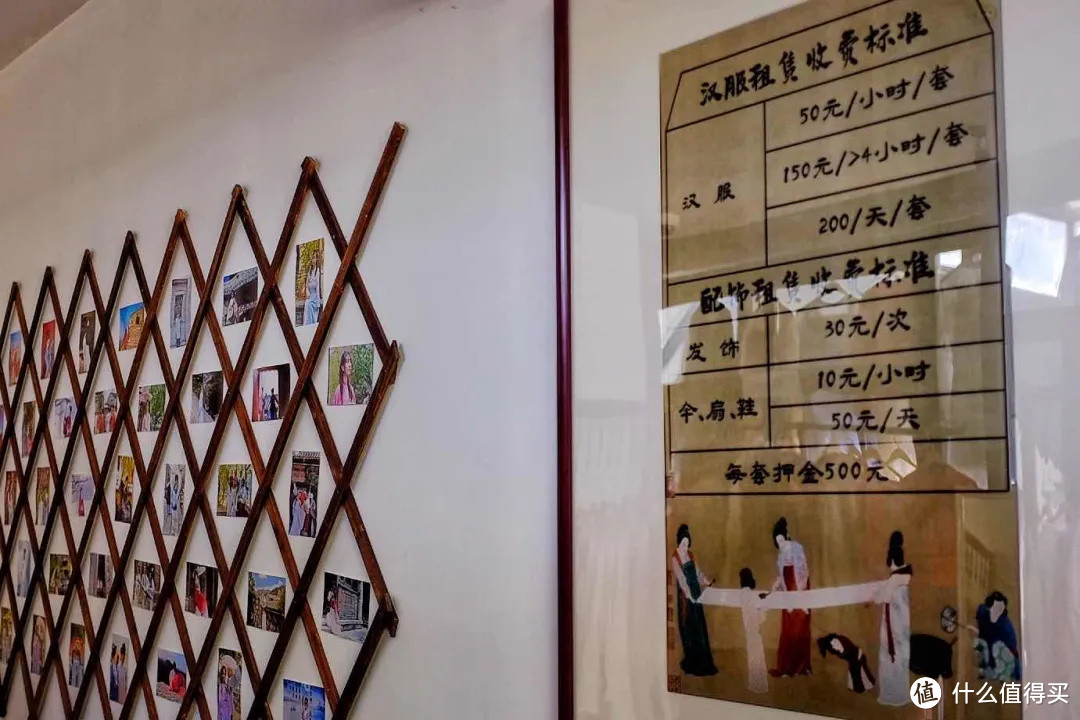 汉服租赁收费标准
汉服
50元/小时/套
150元/>4小时/套
200/天/套
配饰租赁收费标准
发饰
30元/次
伞、扇、鞋
10元/小时
50元/天
每套押金500元
值 什么值得买